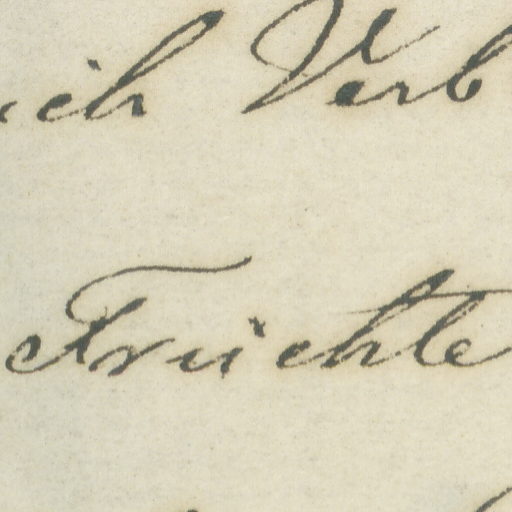 ich Verb
Früchte